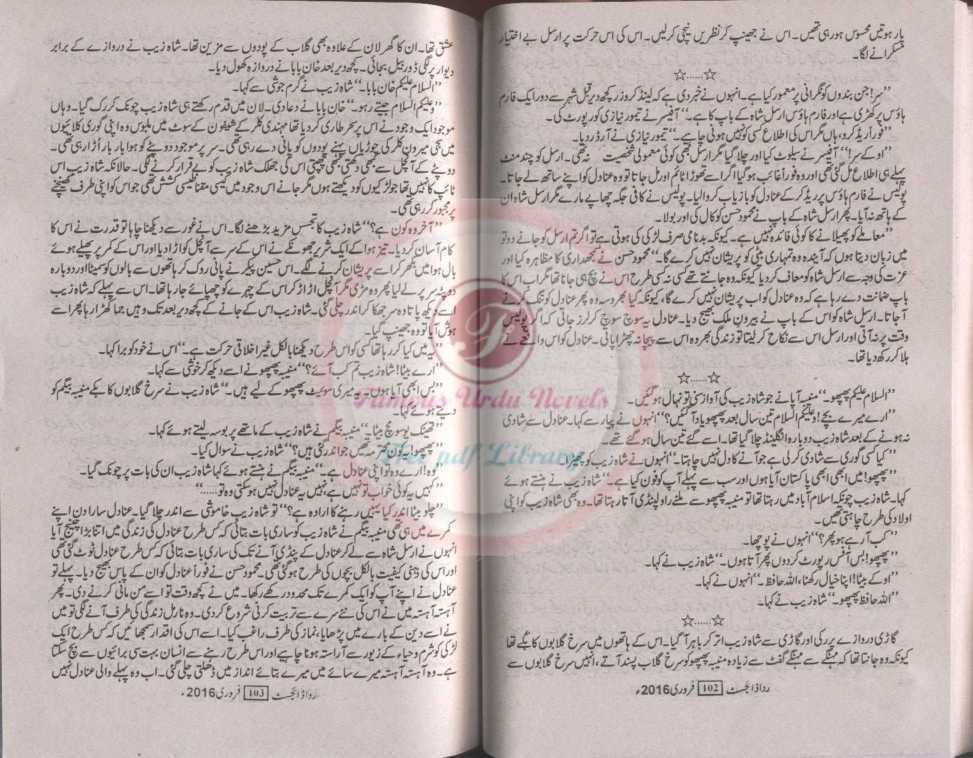 یار ہوتیں محسوس ہو رہی تھیں۔ اس نے جھینپ کر نظریں نیچی کر لیں۔ اس کی اس حرکت پر ارسل بے اختیار
مسکرانے لگا۔
☆......☆
”سر! جن بندوں کو نگرانی پر معمور کیا ہے۔ انہوں نے خبر دی ہے کہ لینڈ کروزر کچھ دیر قبل شہر سے دور ایک فارم
ہاؤس پر کھڑی ہے اور فارم ہاؤس ارسل شاہ کے باپ کا ہے۔“ آفیسر نے تیمور نیازی کو رپورٹ کی۔
”فوراً ریڈ کرو، ہاں مگر اس کی اطلاع کسی کو نہیں ہونی چاہیے۔“ تیمور نیازی نے آرڈر دیا۔
”اوکے سر!“ آفیسر نے سیلوٹ کیا اور چلا گیا مگر ارسل بھی کوئی معمولی شخصیت نہ تھی۔ ارسل کو چند منٹ
پہلے ہی اطلاع مل گئی تھی اور وہ فوراً غائب ہو گیا اگر اسے تھوڑا ٹائم اور مل جاتا تو وہ عنادل کو اپنے ساتھ لے جاتا۔
پولیس نے فارم ہاؤس پر ریڈ کر کے عنادل کو بازیاب کروا لیا۔ پولیس نے کافی جگہ چھاپے مارے مگر ارسل شاہ ان
کے ہاتھ نہ آیا۔ پھر ارسل شاہ کے باپ نے محمود حسن کو کال کی اور بولا۔
”معاملے کو پھیلانے کا کوئی فائدہ نہیں ہے۔ کیونکہ بدنامی صرف لڑکی کی ہوتی ہے تو اگر تم ارسل کو جانے دو تو
میں زبان دیتا ہوں کہ آئندہ وہ تمہاری بیٹی کو پریشان نہیں کرے گا۔“ محمود حسن نے سمجھداری کا مظاہرہ کیا اور
عزت کی وجہ سے ارسل شاہ کو معاف کر دیا کیونکہ وہ جانتے تھے کسی نہ کسی طرح اس نے بچ ہی جانا تھا مگر اب اس کا
باپ ضمانت دے رہا ہے کہ وہ عنادل کو اب پریشان نہیں کرے گا، کیونکہ کیا بھروسہ وہ پھر عنادل کو تنگ کرنے
آ جاتا۔ ارسل شاہ کو اس کے باپ نے بیرون ملک بھیج دیا۔ عنادل یہ سوچ سوچ کر لرز جاتی کہ اگر پولیس
وقت پر نہ آتی اور ارسل اس سے نکاح کر لیتا تو زندگی بھر وہ اس سے پیچھا نہ چھڑا پاتی۔ عنادل کو اس واقعے نے
ہلا کر رکھ دیا تھا۔
☆......☆
”السلام علیکم پھپھو۔“ منیبہ آپا نے جو شاہ زیب کی آواز سنی تو نہال ہو گئیں۔
”ارے میرے بچے! وعلیکم السلام تین سال بعد پھپھو یاد آ گئیں؟“ انہوں نے پیار سے کہا۔ عنادل سے شادی
نہ ہونے کے بعد شاہ زیب دوبارہ انگلینڈ چلا گیا تھا۔ اسے گئے تین سال ہو گئے تھے۔
”کیا کسی گوری سے شادی کر لی ہے جو آنے کا دل نہیں چاہتا۔“ انہوں نے شاہ زیب کو چھیڑا۔
”پھپھو! میں ابھی ابھی پاکستان آیا ہوں اور سب سے پہلے آپ کو فون کیا ہے۔“ شاہ زیب نے ہنستے ہوئے
کہا۔ شاہ زیب چونکہ اسلام آباد میں رہتا تھا تو منیبہ پھپھو سے ملنے راولپنڈی آتا رہتا تھا۔ وہ بھی شاہ زیب کو اپنی
اولاد کی طرح چاہتی تھیں۔
”کب آ رہے ہو پھر؟“ انہوں نے پوچھا۔
”پھپھو! بس آفس رپورٹ کر دوں پھر آتا ہوں۔“ شاہ زیب نے کہا۔
”اوکے بیٹا! اپنا خیال رکھنا، اللہ حافظ۔“ انہوں نے کہا۔
”اللہ حافظ پھپھو۔“ شاہ زیب نے کہا۔
☆......☆
گاڑی دروازے پر رکی اور گاڑی سے شاہ زیب اتر کر باہر آ گیا۔ اس کے ہاتھوں میں سرخ گلابوں کا بکے تھا
کیونکہ وہ جانتا تھا کہ مہنگے سے مہنگے گفٹ سے زیادہ منیبہ پھپھو کو سرخ گلاب پسند آتے، انہیں سرخ گلابوں سے
ردا ڈائجسٹ 102 فروری 2016ء
عشق تھا۔ ان کا گھر لان کے علاوہ بھی گلاب کے پودوں سے مزین تھا۔ شاہ زیب نے دروازے کے برابر
دیوار پر لگی ڈور بیل بجائی۔ کچھ دیر بعد خان بابا نے دروازہ کھول دیا۔
”السلام علیکم خان بابا۔“ شاہ زیب نے گرم جوشی سے کہا۔
”وعلیکم السلام جیتے رہو۔“ خان بابا نے دعا دی۔ لان میں قدم رکھتے ہی شاہ زیب چونک کر رک گیا۔ وہاں
موجود ایک وجود نے اس پر سحر طاری کر دیا تھا مہندی کلر کے شیفون کے سوٹ میں ملبوس وہ اپنی گوری کلائیوں
میں سجی میرون کلر کی چوڑیاں پہنے پودوں کو پانی دے رہی تھی۔ سر پر موجود دوپٹے کو ہوا بار بار اڑا رہی تھی۔
دوپٹے کے آنچل سے کبھی دکھتی کبھی چھپتی اس کی جھلک شاہ زیب کو بے قرار کرنے لگی۔ حالانکہ شاہ زیب اس
ٹائپ کا نہیں تھا جو لڑکیوں کو دیکھتے ہوں مگر جانے اس وجود میں کیسی مقناطیسی کشش تھی جو اس کو اپنی طرف کھینچنے
پر مجبور کر رہی تھی۔
”آخر وہ کون ہے؟“ شاہ زیب کا تجسس مزید بڑھنے لگا۔ اس نے غور سے دیکھنا چاہا تو قدرت نے اس کا
کام آسان کر دیا۔ تیز ہوا کے ایک شریر جھونکے نے اس کے سر سے آنچل کو اڑا دیا اور اس کے کمر پر پھیلے ہوئے
بال ہوا میں بکھر کر اسے پریشان کرنے لگے۔ اس حسین پیکر نے پانی روک کر ہاتھوں سے بالوں کو سمیٹا اور دوبارہ
دوپٹہ سر پر لے لیا پھر وہ مڑی مگر آنچل اڑ اڑ کر اس کے چہرے کو چھپائے جا رہا تھا۔ اس سے پہلے کہ شاہ زیب
اسے دیکھ پاتا وہ سر جھکا کر اندر چلی گئی۔ شاہ زیب اس کے جانے کے کچھ دیر بعد تک وہیں جما کھڑا رہا پھر اسے
ہوش آیا تو وہ جھینپ گیا۔
”یہ میں کیا کر رہا تھا کسی کو اس طرح دیکھنا بالکل غیر اخلاقی حرکت ہے۔“ اس نے خود کو برا کہا۔
”ارے بیٹا! شاہ زیب تم کب آئے؟“ منیبہ پھپھو نے اسے دیکھ کر خوشی سے کہا۔
”بس ابھی آیا ہوں۔ یہ میری سویٹ پھپھو کے لیے ہیں۔“ شاہ زیب نے سرخ گلابوں کا بکے منیبہ بیگم کو
دیتے ہوئے کہا۔
”تھینک یو سو مچ بیٹا۔“ منیبہ بیگم نے شاہ زیب کے ماتھے پر بوسہ لیتے ہوئے کہا۔
”پھپھو یہ کون محترمہ تھیں جو اندر گئی ہیں؟“ شاہ زیب نے سوال کیا۔
”وہ! ارے وہ تو اپنی عنادل ہے۔“ منیبہ بیگم نے ہنستے ہوئے کہا شاہ زیب ان کی بات پر چونک گیا۔
”کہیں یہ کوئی خواب تو نہیں ہے، نہیں یہ عنادل نہیں ہو سکتی وہ تو.....“
”چلو بیٹا اندر کیا یہیں رہنے کا ارادہ ہے؟“ تو شاہ زیب خاموشی سے اندر چلا گیا۔ عنادل سارا دن اپنے
کمرے میں ہی تھی منیبہ بیگم نے شاہ زیب کو ساری بات بتائی کہ کس طرح عنادل کی زندگی میں اتنا بڑا چینج آیا
انہوں نے ارسل شاہ سے لے کر عنادل کے پنڈی آنے تک کی ساری بات بتائی کہ کس طرح عنادل ٹوٹ گئی تھی
اور اس کی ذہنی کیفیت بالکل بچوں کی طرح ہو گئی تھی۔ محمود حسن نے فوراً عنادل کو ان کے پاس بھیج دیا۔ پہلے تو
عنادل نے اپنے آپ کو ایک کمرے تک محدود رکھے رکھا۔ میں نے کچھ وقت تو اسے من مانی کرنے دی۔ پھر
آہستہ آہستہ میں نے اس کی نئے سرے سے تربیت کرنی شروع کر دی۔ وہ نارمل زندگی کی طرف آنے لگی تو میں
نے اسے دین کے بارے میں پڑھایا، نماز کی طرف راغب کیا۔ اسے اس کی اقدار سمجھائیں کہ کس طرح ایک
لڑکی کو شرم و حیا کے زیور سے آراستہ ہونا چاہیے اور اس طرح رہنے سے انسان بہت سی برائیوں سے بچ سکتا
ہے۔ وہ آہستہ آہستہ میرے سائے میں میرے بتائے انداز میں ڈھلتی چلی گئی۔ اب وہ پہلے والی عنادل نہیں
ردا ڈائجسٹ 103 فروری 2016ء
Famous Urdu Novels
Free pdf Library